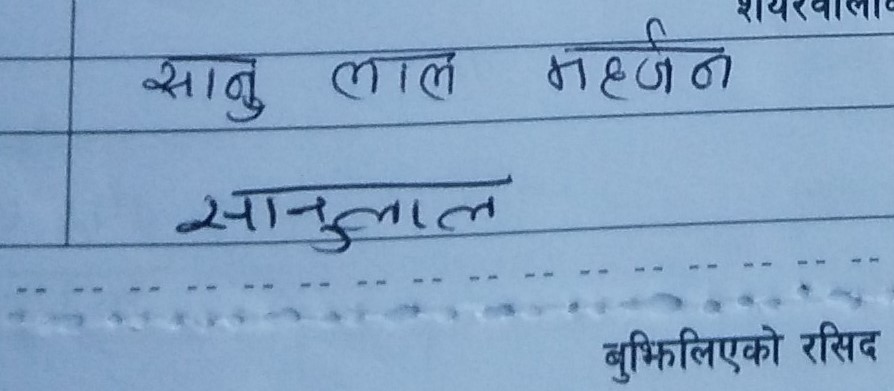 सानु लाल महर्जन
सानुलाल
बुझिलिएको रसिद